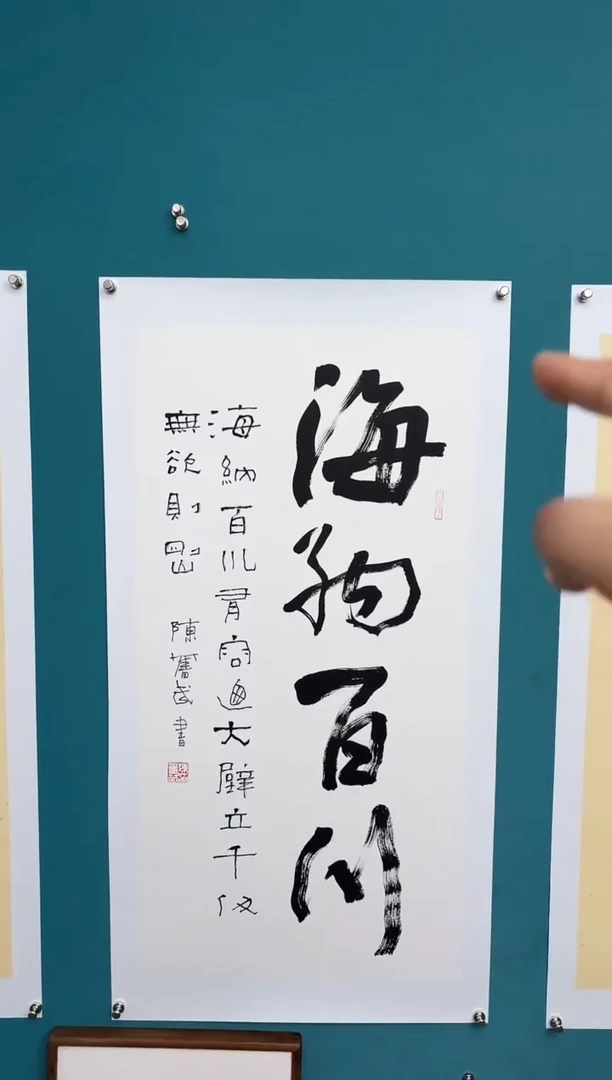 海納百川
海納百川有容迺大壁立千仞
無欲則剛 陳奮武書